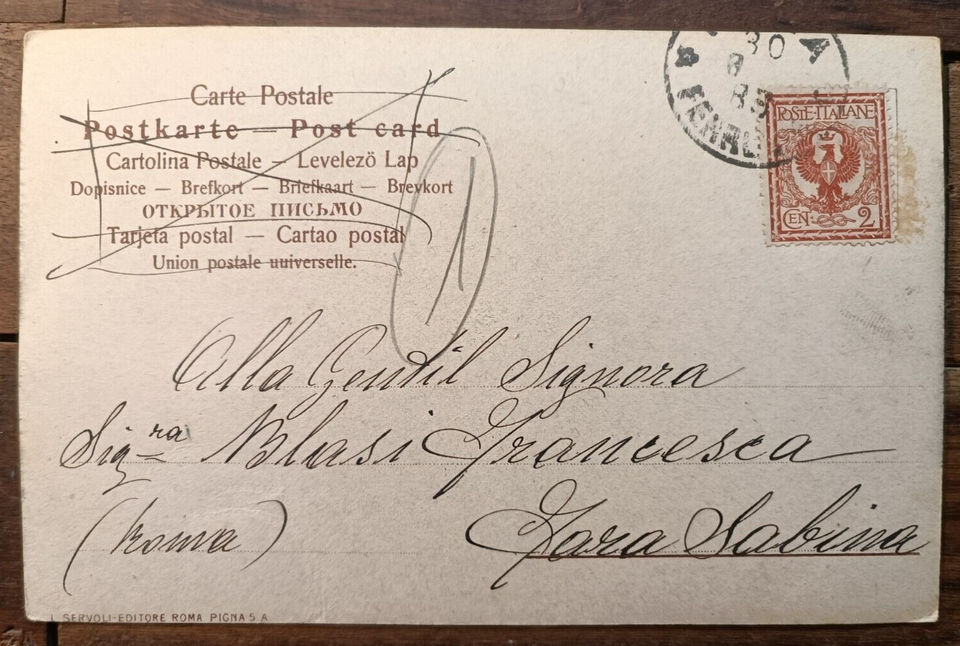 Carte Postale
Postkarte — Post card
Cartolina Postale — Levelezö Lap
Dopisnice — Brefkort — Briefkaart — Brevkort
ОТКРЫТОЕ ПИСЬМО
Tarjeta postal — Cartao postal
Union postale uuiverselle.
30
POSTE·ITALIANE
CEN. 2
1
Alla Gentil Signora
Sig.ra Blasi Francesca
(Roma) Fara Sabina
SERVOLI-EDITORE ROMA PIGNA 5 A